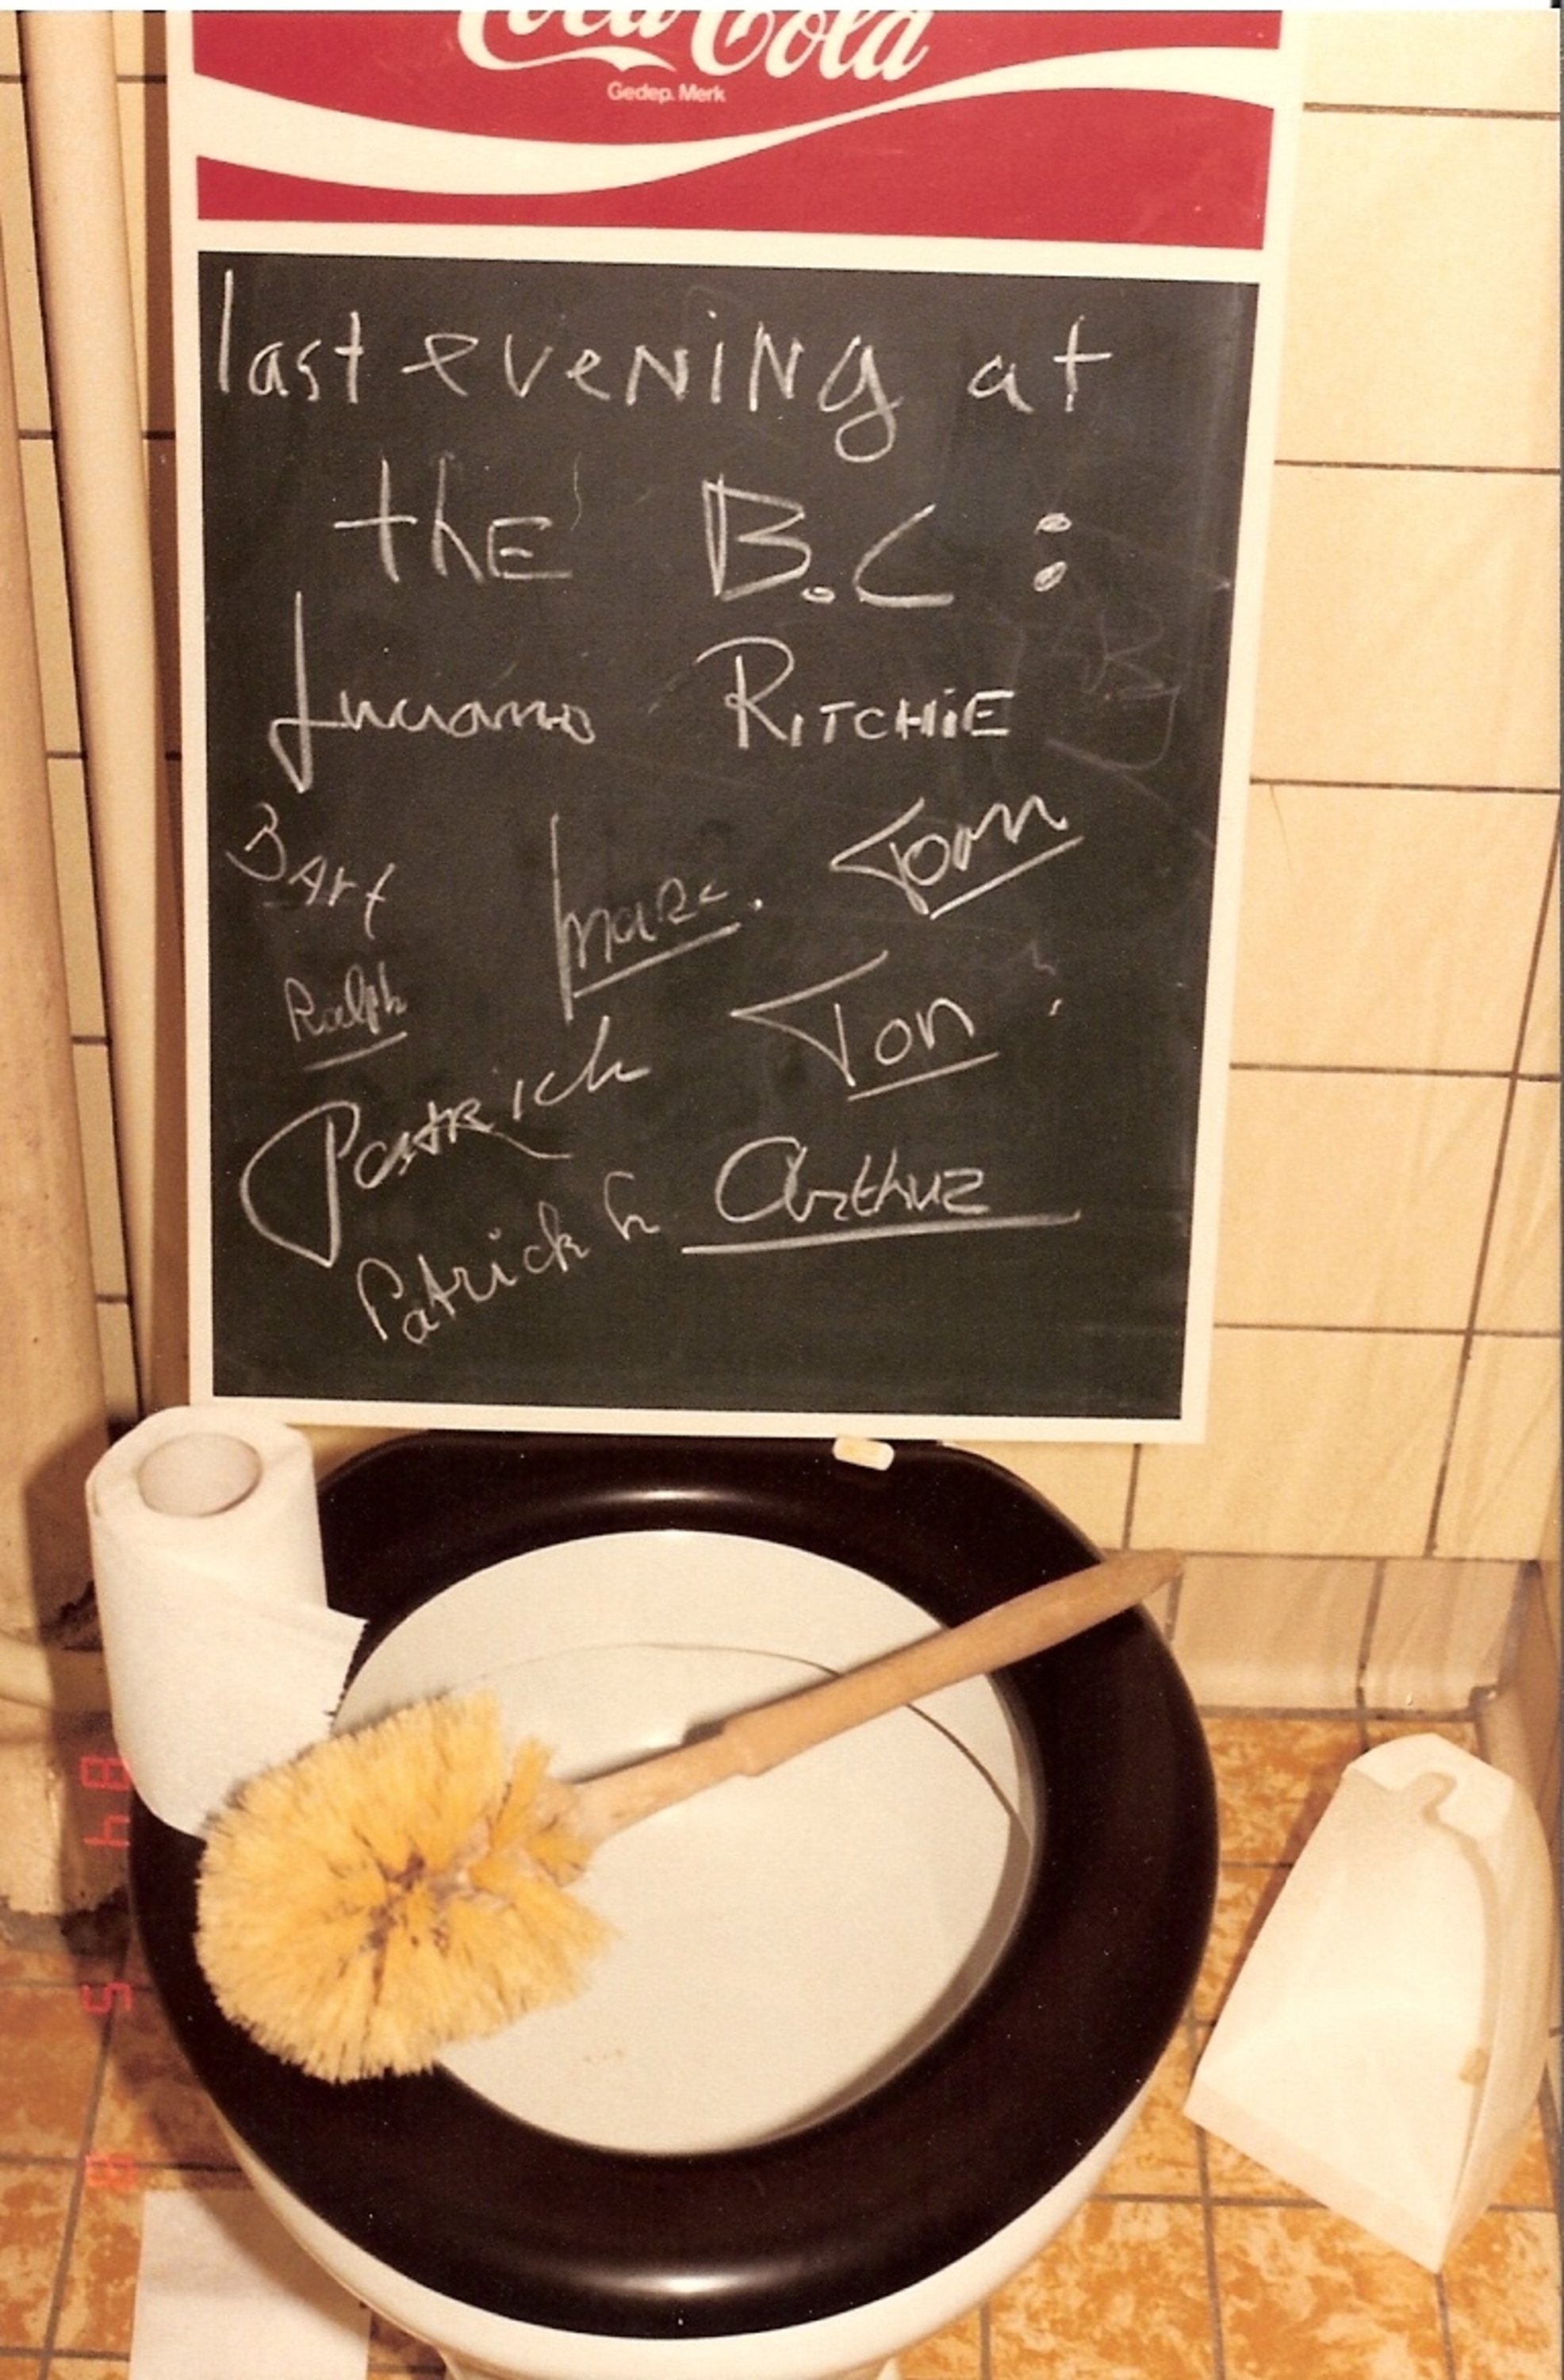 Coca-Cola
Gedep. Merk
last eveNiNg at
thE B.C :
Luciano RITCHiE
BArt marc. Tom
Ralph Ton
Patrick
Patrick h Arthur
84 5 8